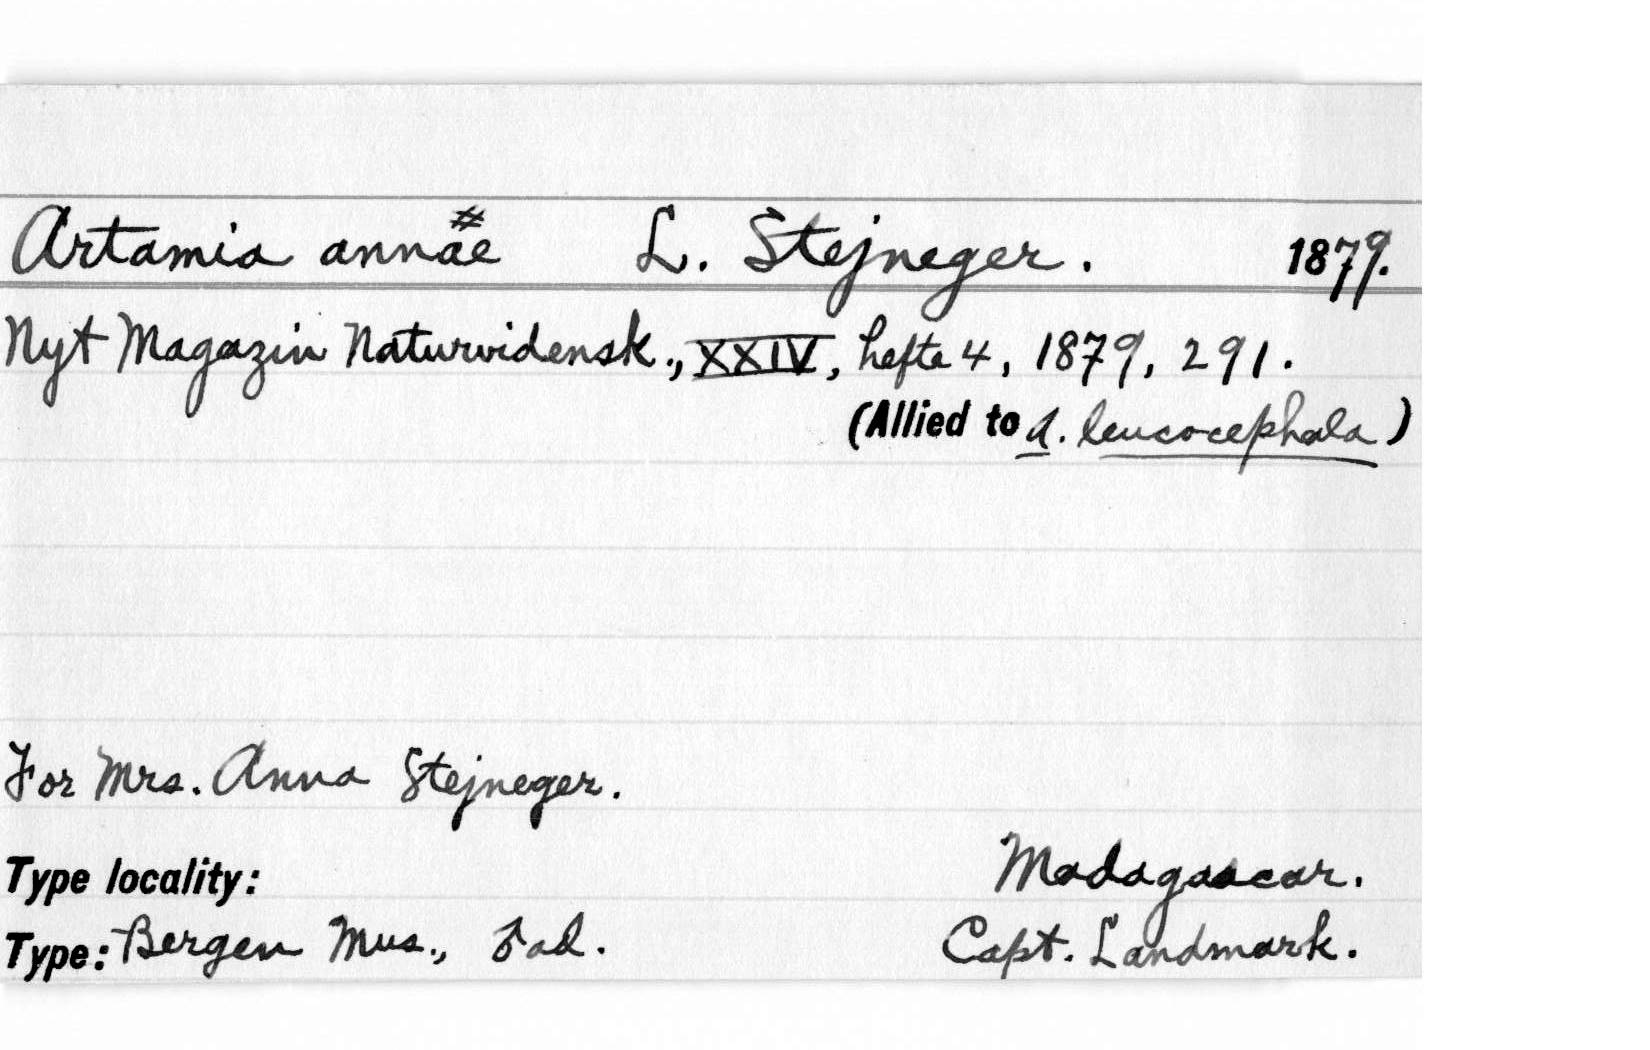 Artamia annae # L. Stejneger. 1879.
Nyt Magazin Naturvidensk., XXIV, hefte 4, 1879, 291.
(Allied to A. leucocephala)
For Mrs. Anna Stejneger.
Type locality: Madagascar.
Type: Bergen Mus., ♂ ad. Capt. Landmark.